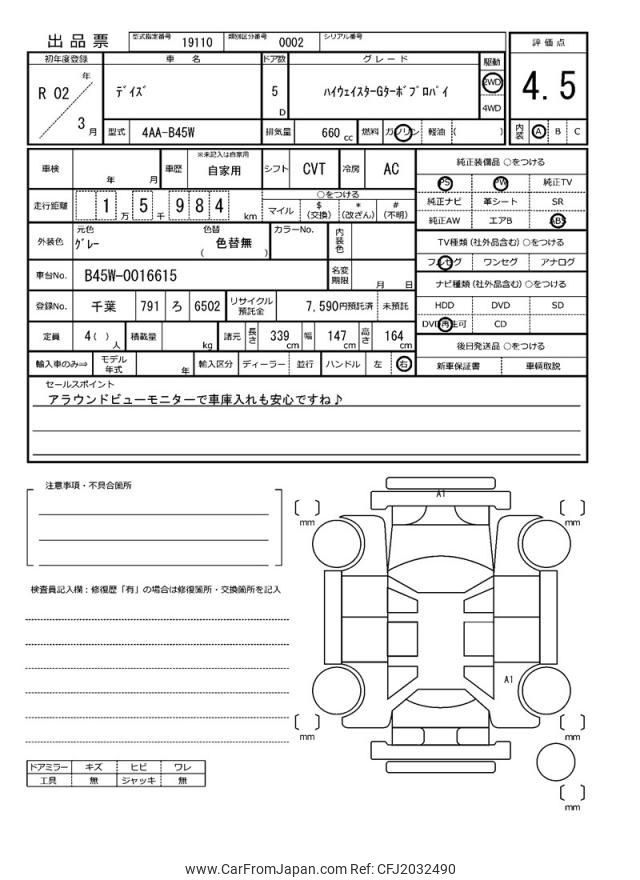 出品票 型式指定番号 19110 類別区分番号 0002 シリアル番号
初年度登録 車名 ドア数 グレード 駆動 評価点
R 02 年 3 月 デイズ 5 D ハイウェイスターGターボプロパイ 2WD 4WD 4.5
型式 4AA-B45W 排気量 660 cc 燃料 ガソリン 軽油 ( ) 内装 A B C
車検 年 月 車歴 ※未記入は自家用 自家用 シフト CVT 冷房 AC
走行距離 1 万 5 千 9 8 4 km ○をつける マイル $ (交換) * (改ざん) # (不明)
外装色 元色 グレー 色替 色替無 ( ) カラーNo. 内装色
車台No. B45W-0016615 名変期限 月 日
登録No. 千葉 791 ろ 6502 リサイクル預託金 7,590円預託済 未預託
定員 4 ( ) 人 積載量 kg 諸元 長さ 339 cm 幅 147 cm 高さ 164 cm
輸入車のみ⇒ モデル年式 年 輸入区分 ディーラー 並行 ハンドル 左 右
純正装備品 ○をつける
PS PW 純正TV
純正ナビ 革シート SR
純正AW エアB ABS
TV種類 (社外品含む) ○をつける
フルセグ ワンセグ アナログ
ナビ種類 (社外品含む) ○をつける
HDD DVD SD
DVD再生可 CD
後日発送品 ○をつける
新車保証書 車輌取説
セールスポイント
アラウンドビューモニターで車庫入れも安心ですね♪
注意事項・不具合箇所
検査員記入欄：修復歴「有」の場合は修復箇所・交換箇所を記入
A1
mm
mm
A1
mm
mm
mm
ドアミラー キズ ヒビ ワレ
工具 無 ジャッキ 無
www.CarFromJapan.com Ref: CFJ2032490